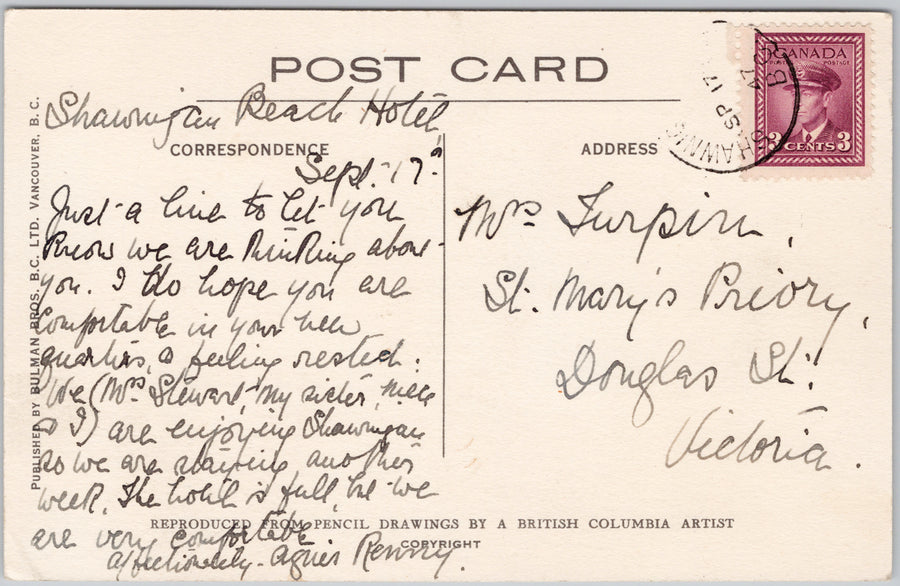 POST CARD
Shawnigan Beach Hotel,
CORRESPONDENCE
Sept. 17th
Just a line to let you
know we are thinking about
you. I do hope you are
comfortable in your new
quarters, & feeling rested.
We (Mrs Stewart, my sister, niece
& I) are enjoying Shawnigan
so we are staying another
week. The hotel is full, but we
are very comfortable
affectionately - Agnes
ADDRESS
Mrs Turpin,
St. Mary's Priory,
Douglas St.
Victoria.
CANADA
POSTES POSTAGE
3 CENTS 3
SHAWNIG
SP 17
47
B
PUBLISHED BY BULMAN BROS. B.C. LTD. VANCOUVER, B. C.
REPRODUCED FROM PENCIL DRAWINGS BY A BRITISH COLUMBIA ARTIST
COPYRIGHT